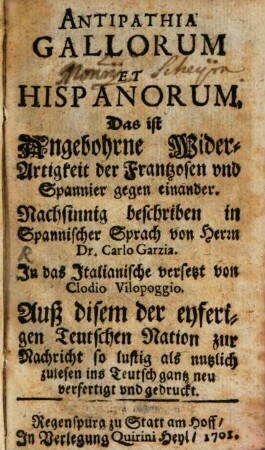 ANTIPATHIA
GALLORUM
ET
HISPANORUM,
Das ist
Angebohrne Wider-
Artigkeit der Frantzosen vnd
Spannier gegen einander.
Nachsinnig beschriben in
Spannischer Sprach von Herrn
Dr. Carlo Garzia.
In das Italianische versetzt von
Clodio Vilopoggio.
Auß disem der eyferi-
gen Teutschen Nation zur
Nachricht so lustig als nutzlich
zulesen ins Teutsch gantz neu
verfertigt vnd gedruckt.
Regenspurg zu Statt am Hoff/
In Verlegung Quirini Heyl/ 1701.